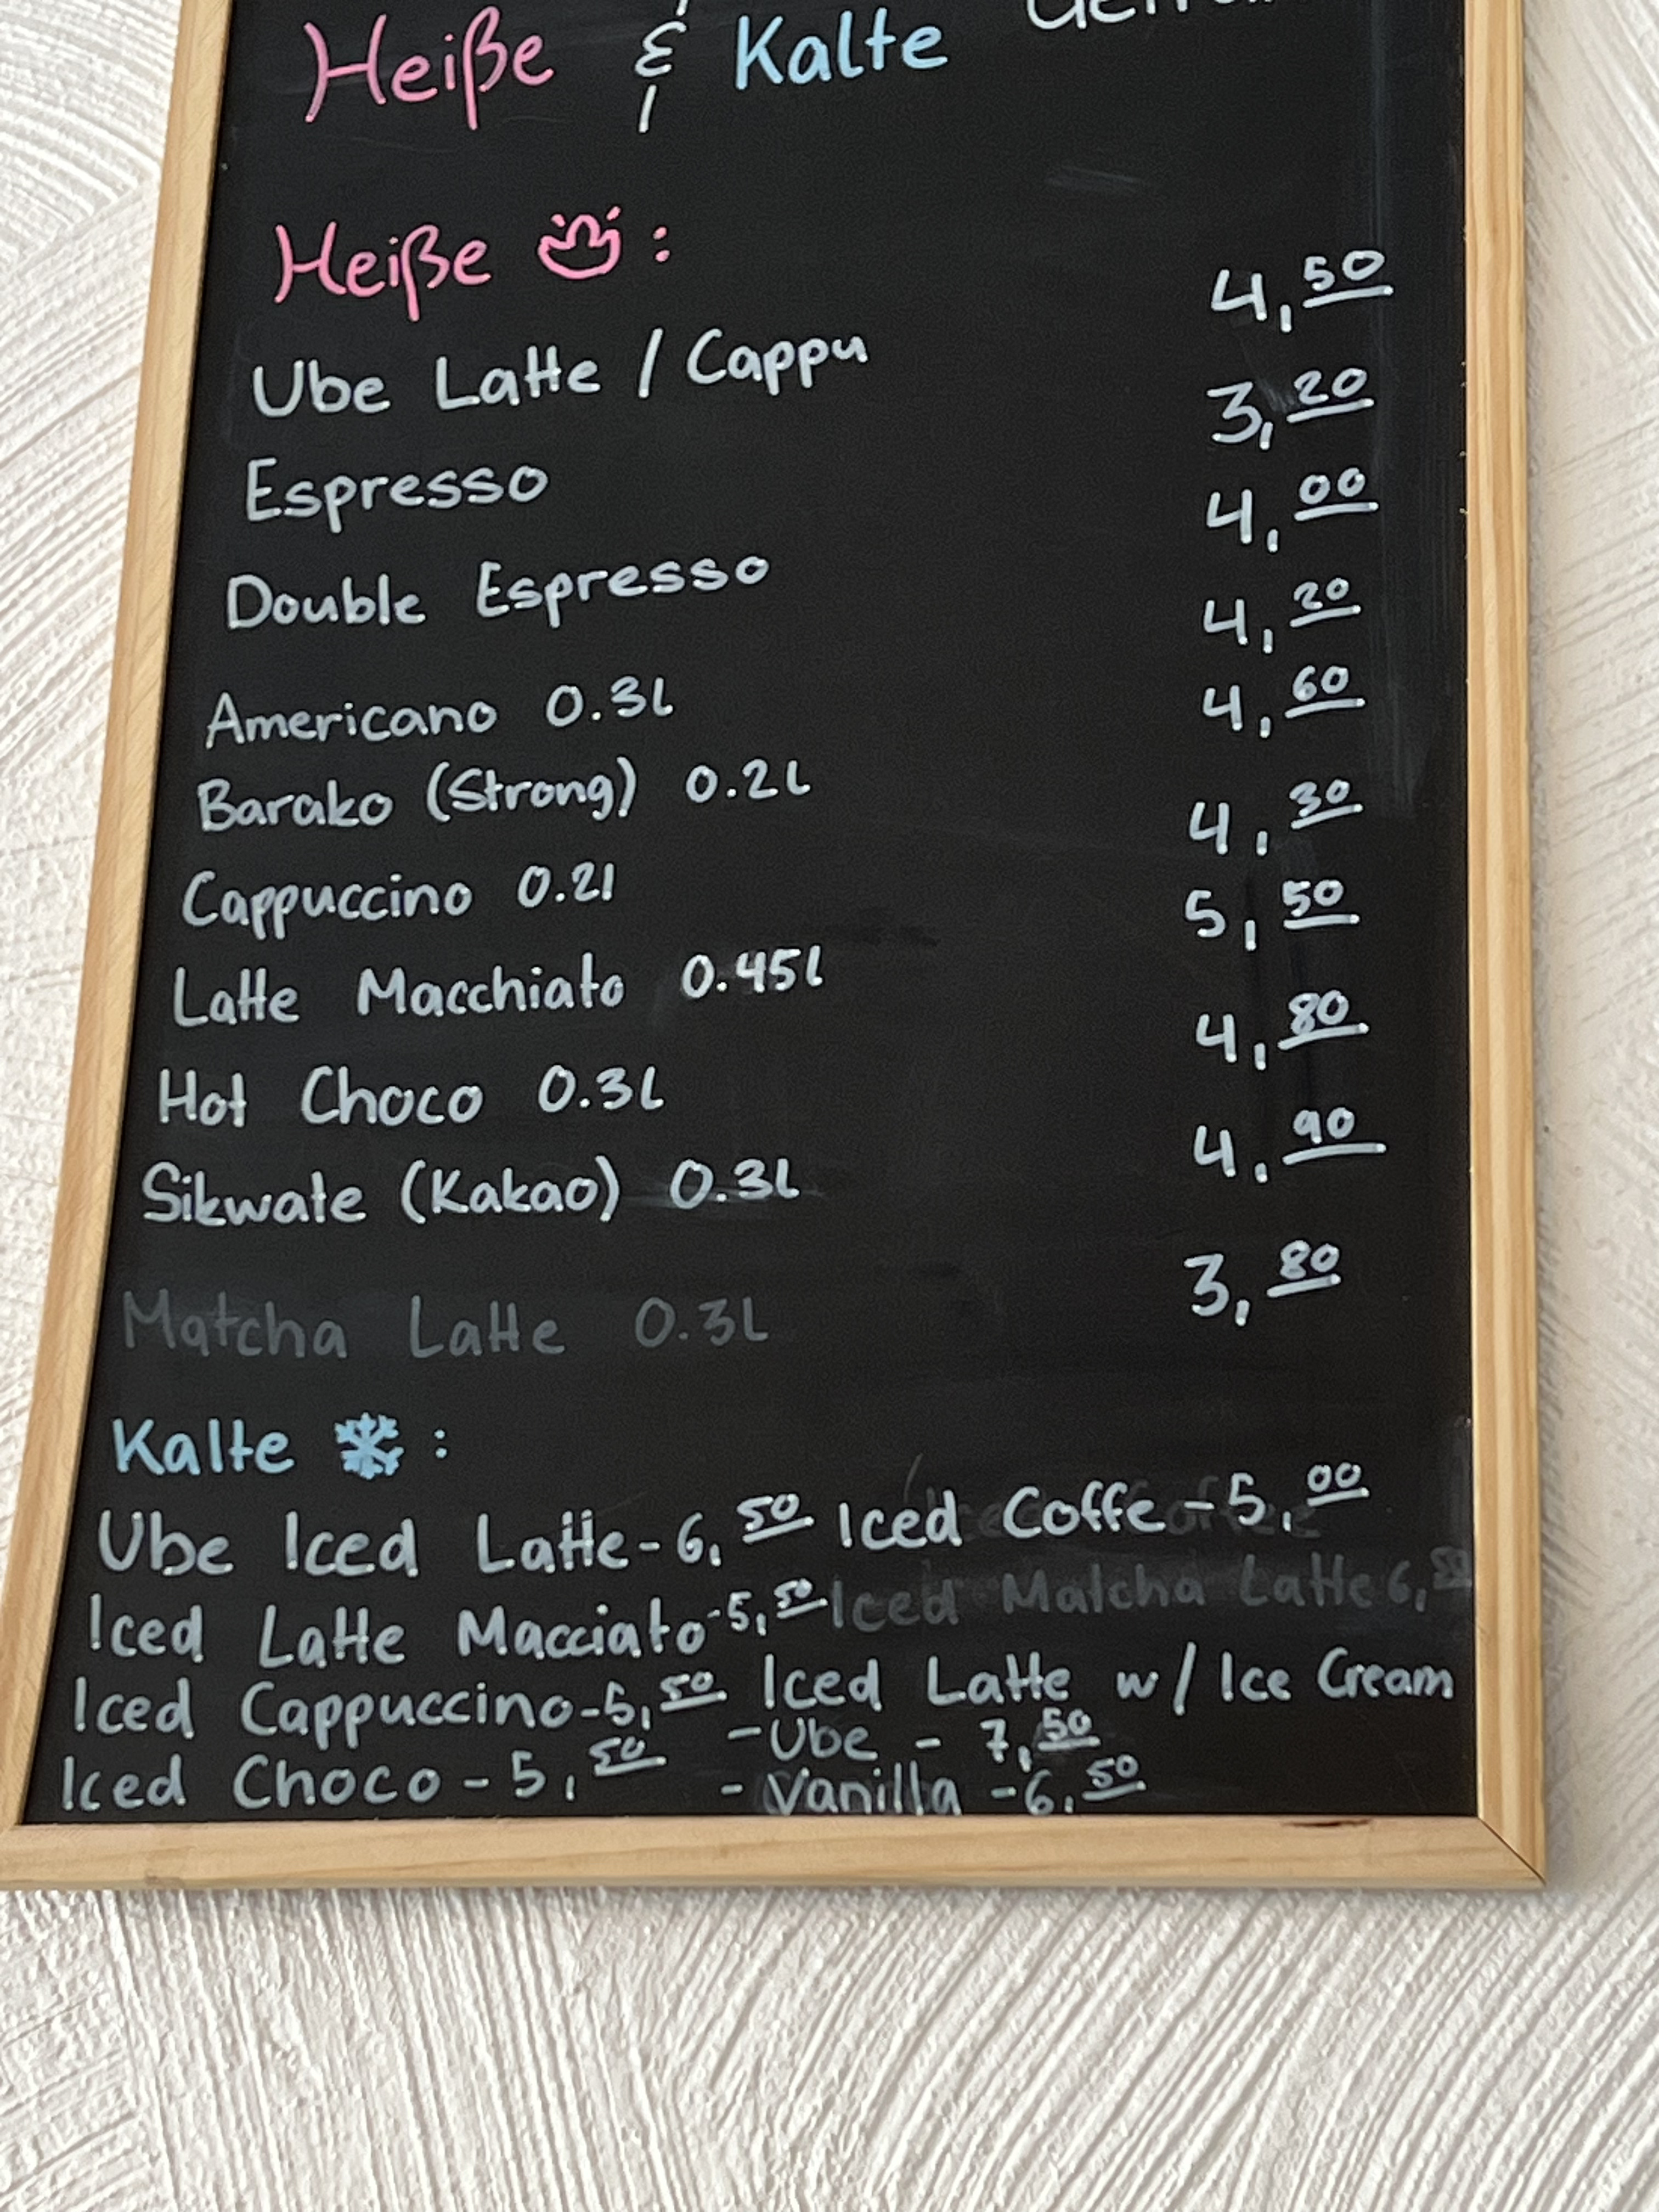 Heiße & Kalte
Heiße :
Ube Latte / Cappu 4,50
Espresso 3,20
Double Espresso 4,00
Americano 0.3L 4,20
Barako (Strong) 0.2L 4,60
Cappuccino 0.2l 4,30
Latte Macchiato 0.45l 5,50
Hot Choco 0.3L 4,80
Sikwate (Kakao) 0.3L 4,90
Matcha Latte 0.3L 3,80
Kalte :
Ube Iced Latte - 6,50 Iced Coffe - 5,00
Iced Latte Macciato - 5,50 Iced Matcha Latte 6,50
Iced Cappuccino - 5,50 Iced Latte w/ Ice Cream
Iced Choco - 5,50 - Ube - 7,50
- Vanilla - 6,50